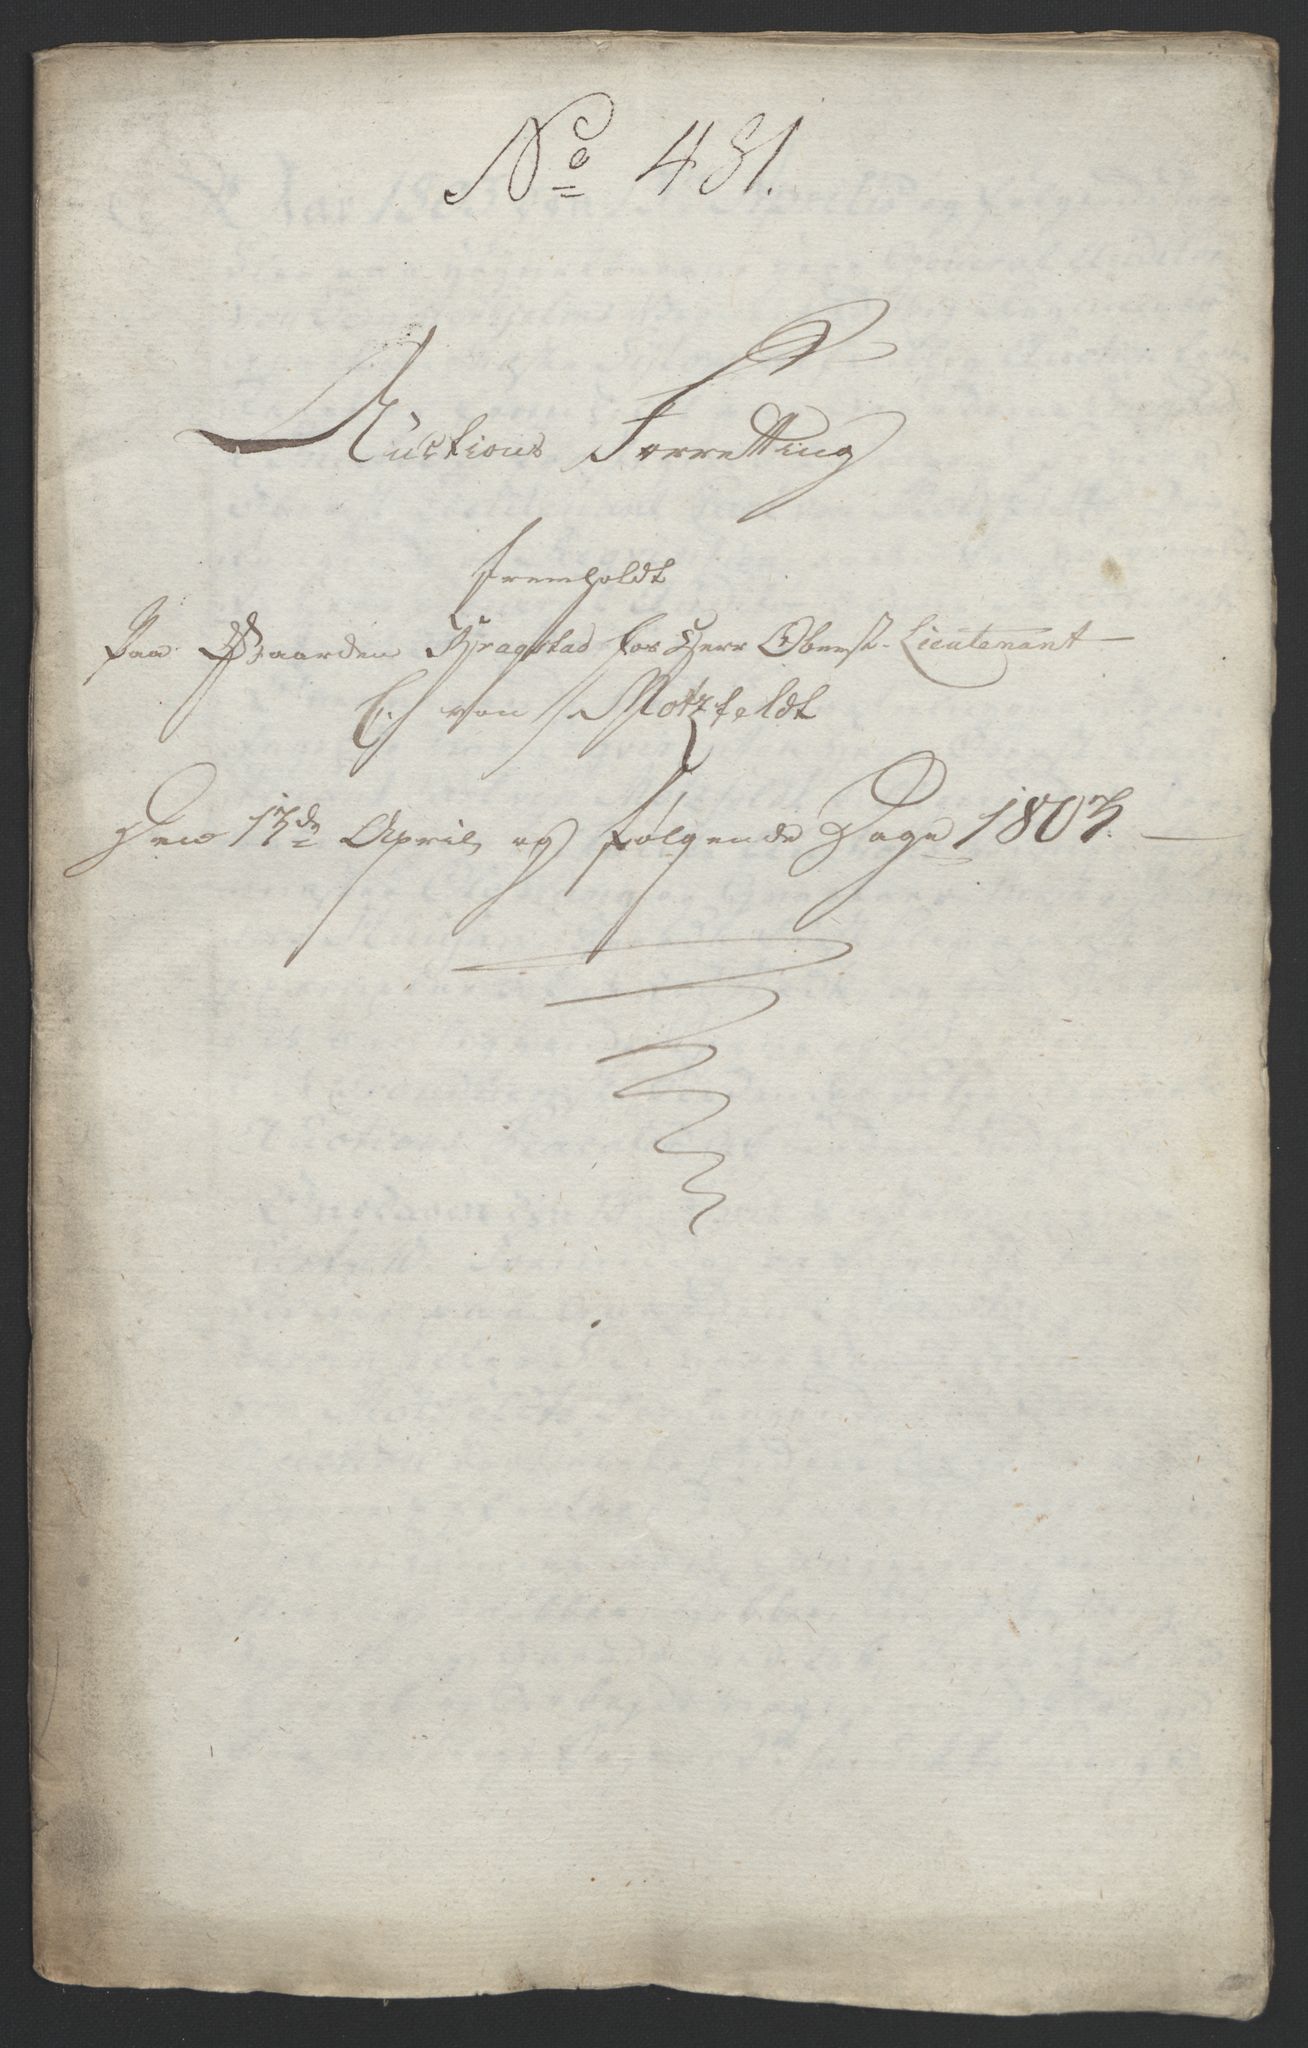 No 431.
Auctions Forretting
fremholdt
Paa Gaarden Kragstad for Herr Oberst-Lieutenant
C. von Motzfeldt
Den 13de April og følgende Dage 1803.